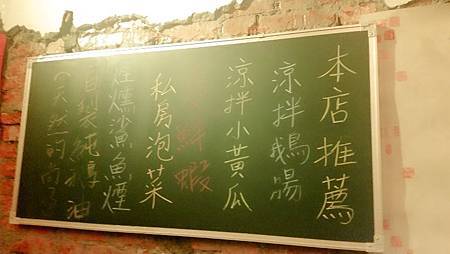 本店推薦
涼拌鵝腸
涼拌小黃瓜
鮮蝦
私房泡菜
煙燻鯊魚煙
自製純辣油